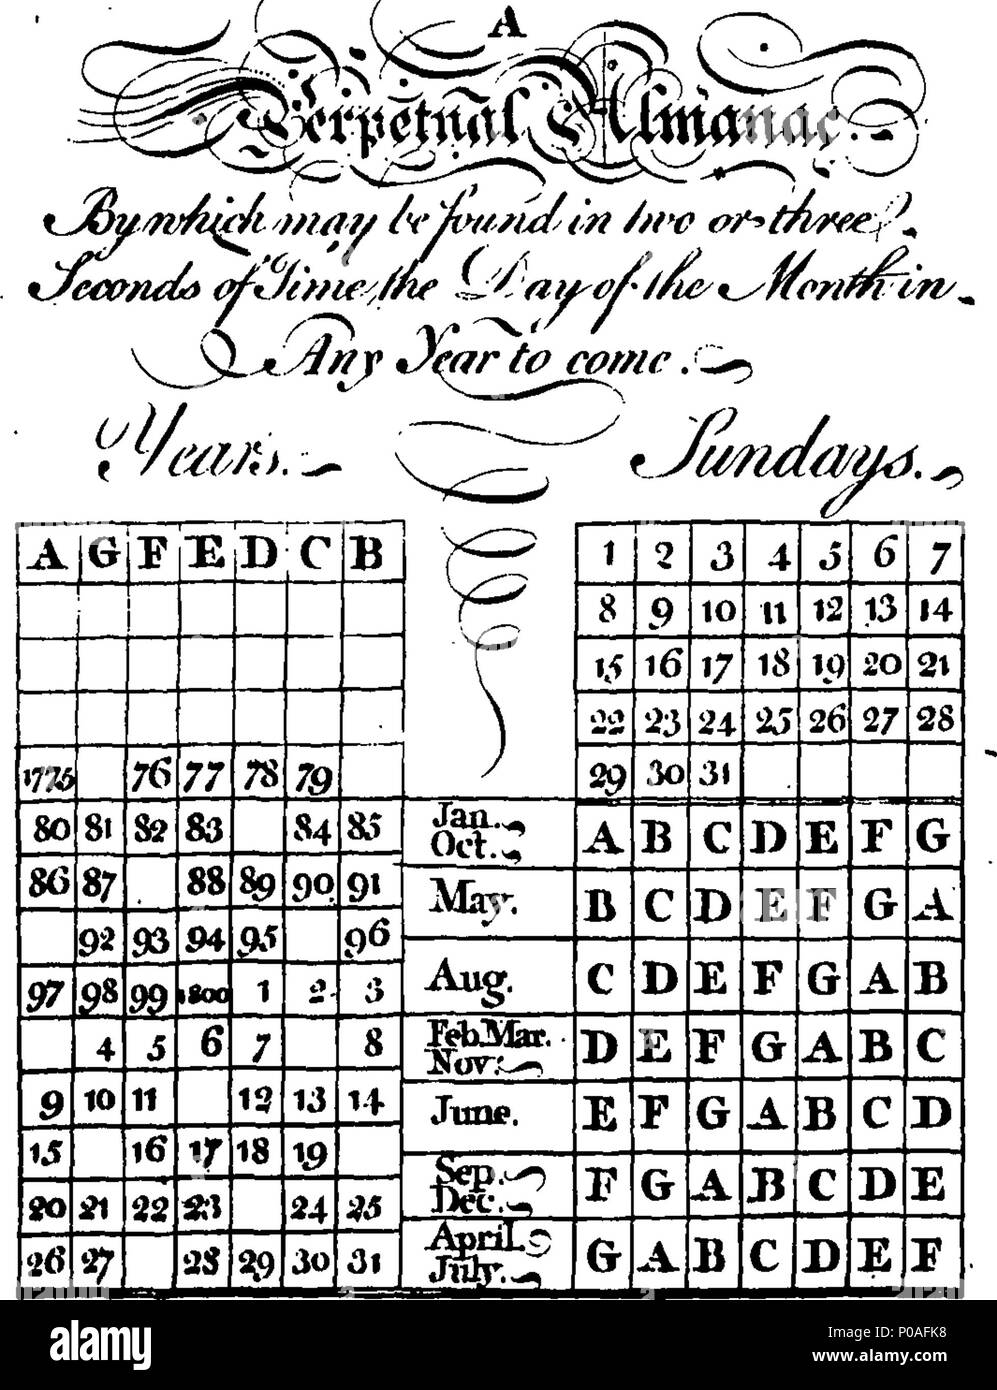 A
Perpetual Almanac.
By which may be found in two or three
Seconds of Time, the Day of the Month in
Any Year to come.
Years.
Sundays.
A G F E D C B
1775 76 77 78 79
80 81 82 83 84 85
86 87 88 89 90 91
92 93 94 95 96
97 98 99 1800 1 2 3
4 5 6 7 8
9 10 11 12 13 14
15 16 17 18 19
20 21 22 23 24 25
26 27 28 29 30 31
1 2 3 4 5 6 7
8 9 10 11 12 13 14
15 16 17 18 19 20 21
22 23 24 25 26 27 28
29 30 31
Jan. Oct. A B C D E F G
May. B C D E F G A
Aug. C D E F G A B
Feb. Mar. Nov: D E F G A B C
June. E F G A B C D
Sep. Dec. F G A B C D E
April. July. G A B C D E F
alamy
Image ID: P0AFK8
www.alamy.com